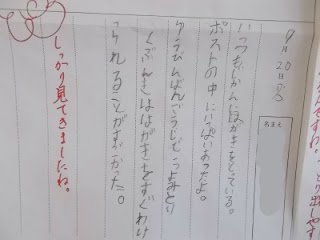 9月20日
いつもじかんにはがきをとっている。
ポストの中にいっぱいあったよ。
ゆうびんばんごうじどうよみとり
くぶんきははがきをすぐわけ
られることがすごかった。
しっかり見てきましたね。
なまえ